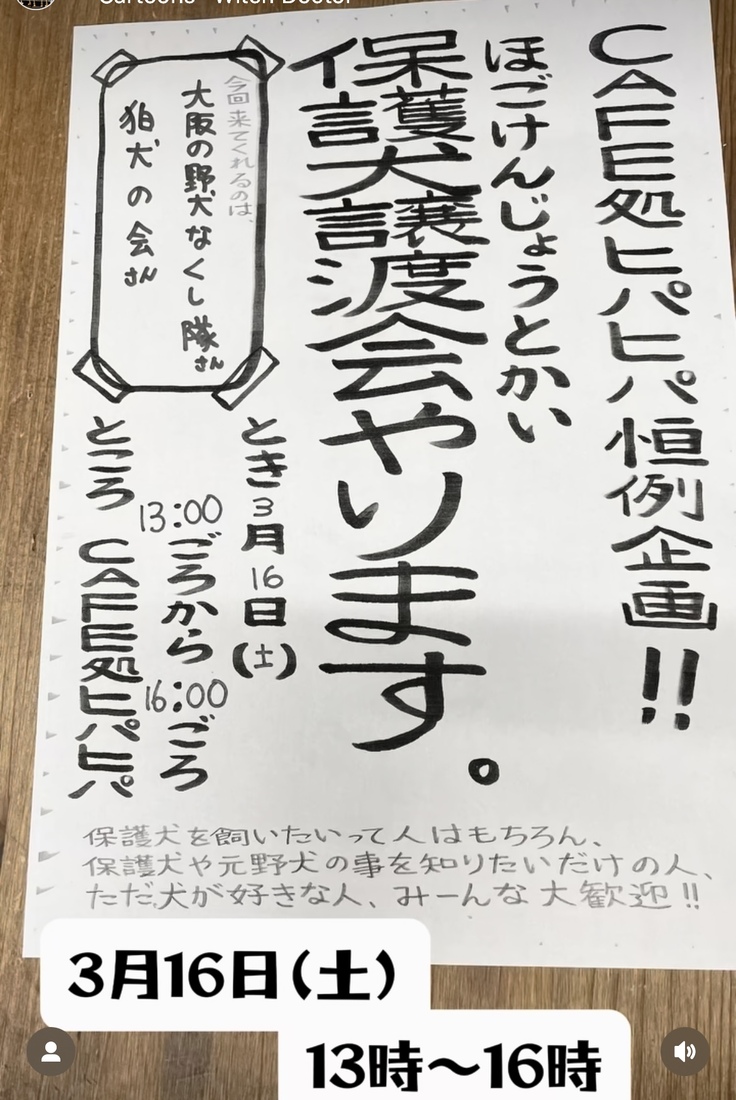 Cartoons · Witch Doctor
CAFE処ヒパヒパ恒例企画!!
ほごけんじょうとかい
保護犬譲渡会やります。
今回来てくれるのは、
大阪の野犬なくし隊さん
狛犬の会さん
とき3月16日(土)
13:00ごろから16:00ごろ
ところ CAFE処ヒパヒパ
保護犬を飼いたいって人はもちろん、
保護犬や元野犬の事を知りたいだけの人、
ただ、犬が好きな人、みーんな大歓迎!!
3月16日(土)
13時〜16時